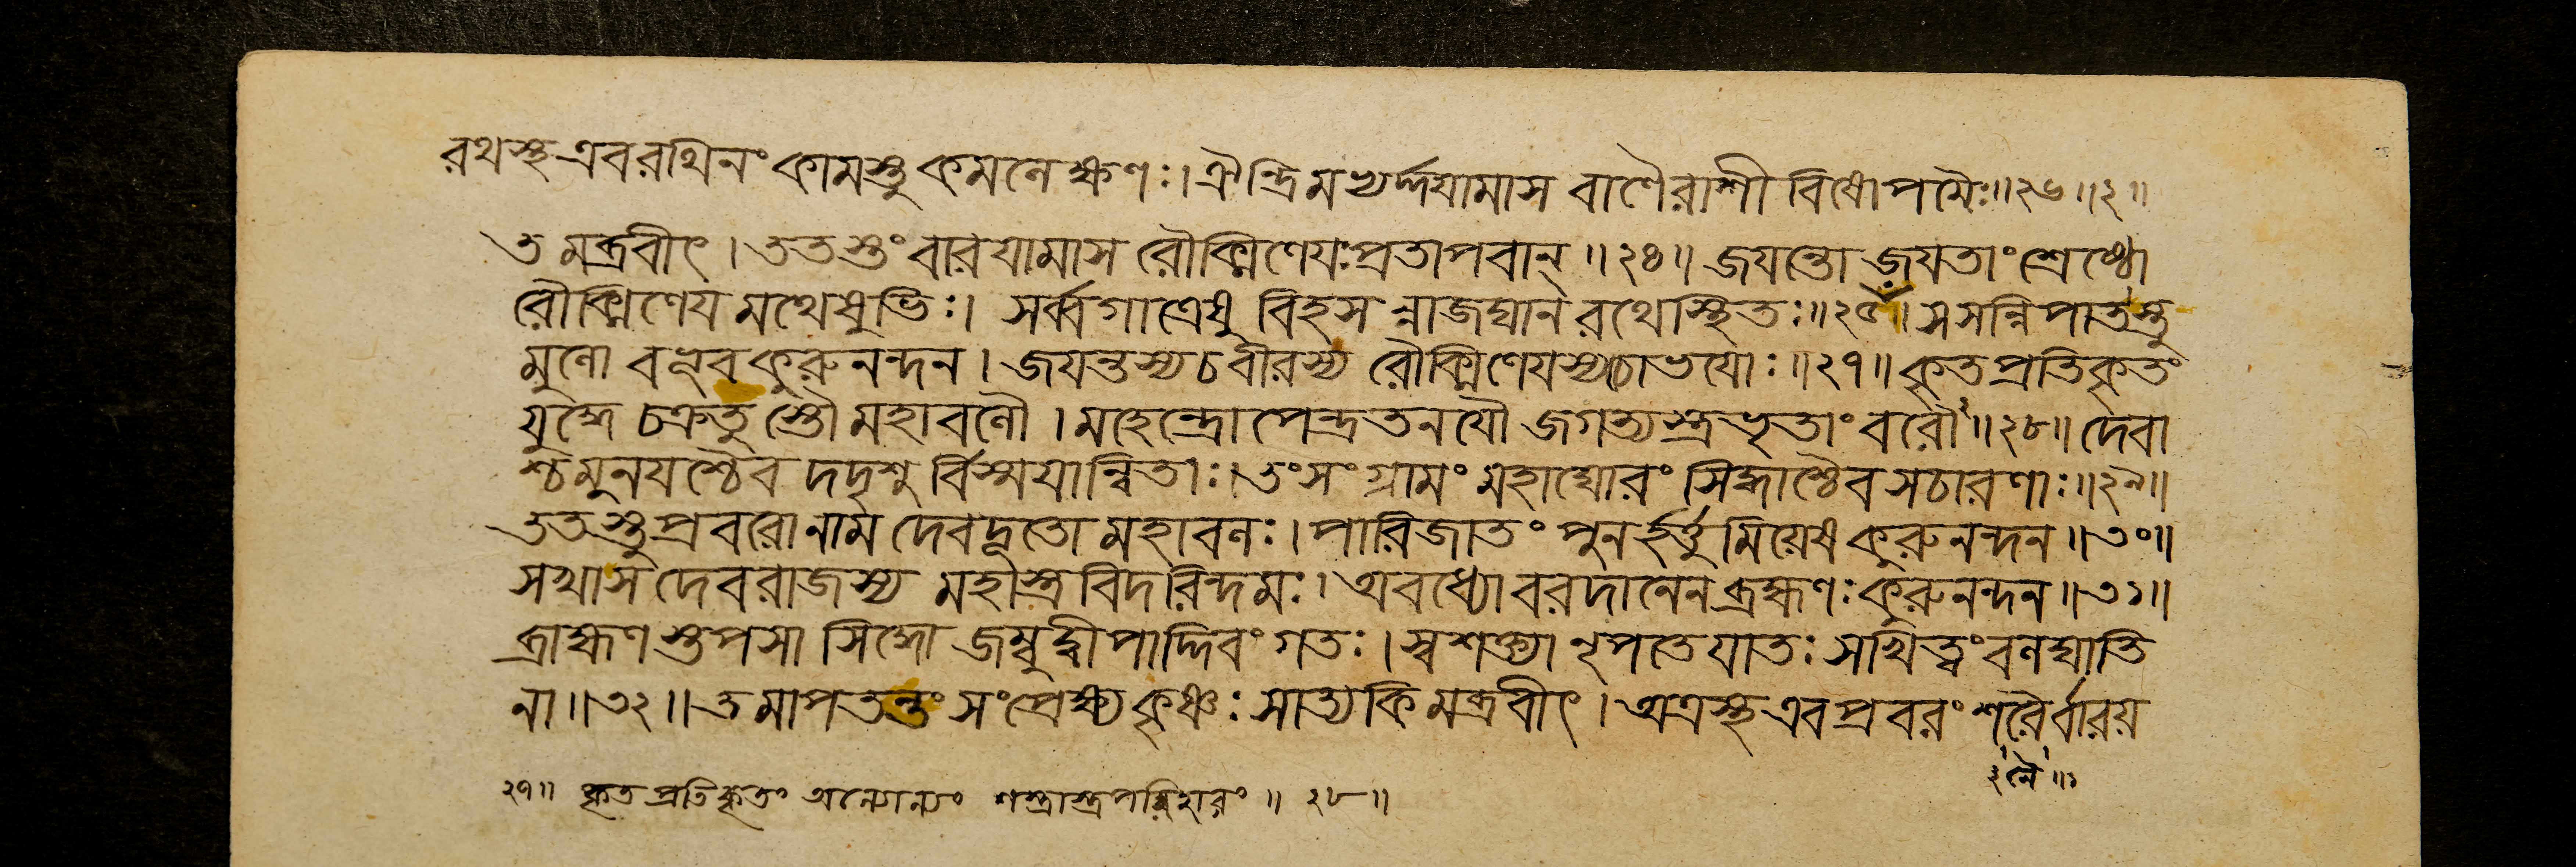 রথস্থ এব রথিনং কামস্তু কমনেক্ষণঃ। ঐন্দ্রিমপ্যর্দ্দয়ামাস বাণৈরাশীবিষোপমৈঃ॥২৬॥২॥
তমব্রবীৎ। ততস্তং বারয়ামাস রৌক্মিণেয়ঃ প্রতাপবান্॥২৪॥ জয়ন্তো জয়তাং শ্রেষ্ঠো
রৌক্মিণেয়মথেষুভিঃ। সর্ব্বগাত্রেষু বিহসন্নাজঘান রথে স্থিতঃ॥২৫॥ স সন্নিপাতস্তু
মুনো বভূব কুরুনন্দন। জয়ন্তস্য চ বীরস্য রৌক্মিণেয়স্য চোভয়োঃ॥২৭॥ কৃতপ্রতিকৃতং
যুদ্ধে চক্রতুস্তৌ মহাবলৌ। মহেন্দ্রোপেন্দ্রতনয়ৌ জগত্যস্ত্রভৃতাং বরৌ॥২৮॥ দেবা
শ্চ মুনয়শ্চৈব দদৃশুর্বিস্ময়ান্বিতাঃ। তং সংগ্রামং মহাঘোরং সিদ্ধাশ্চৈব সচারণাঃ॥২৯॥
ততস্তু প্রবরো নাম দেবদূতো মহাবলঃ। পারিজাতং পুনর্হর্ত্তুমিয়েষ কুরুনন্দন॥৩০॥
সখা স দেবরাজস্য মহাস্ত্রবিদরিন্দমঃ। অবধ্যো বরদানেন ব্রহ্মণঃ কুরুনন্দন॥৩১॥
ব্রাহ্মণস্তপসা সিদ্ধো জম্বুদ্বীপাদ্দিবং গতঃ। স্বশক্ত্যা নৃপতে যাতঃ সখিত্বং বলঘাতি
না॥৩২॥ তমাপতন্তং সংপ্রেক্ষ্য কৃষ্ণঃ সাত্যকিমব্রবীৎ। অত্রস্থ এব প্রবরং শরৈর্বারয়
২৭॥ কৃতপ্রতিকৃতং অন্যোন্যং শস্ত্রাস্ত্রপরিহারং॥ ২৮॥